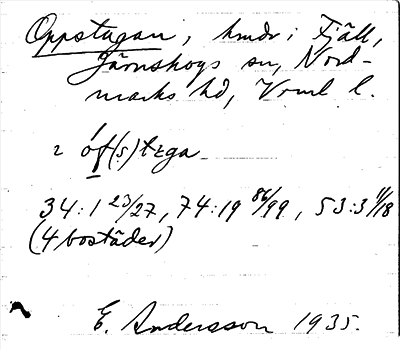 Oppstugan, hmdr i Fjäll,
Järnskogs sn, Nord-
marks hd, Vrml l.
ɪ óf(s)tɛga
34:1 23/27, 74:19 86/99, 53:3 11/18
(4 bostäder)
E. Andersson 1935.